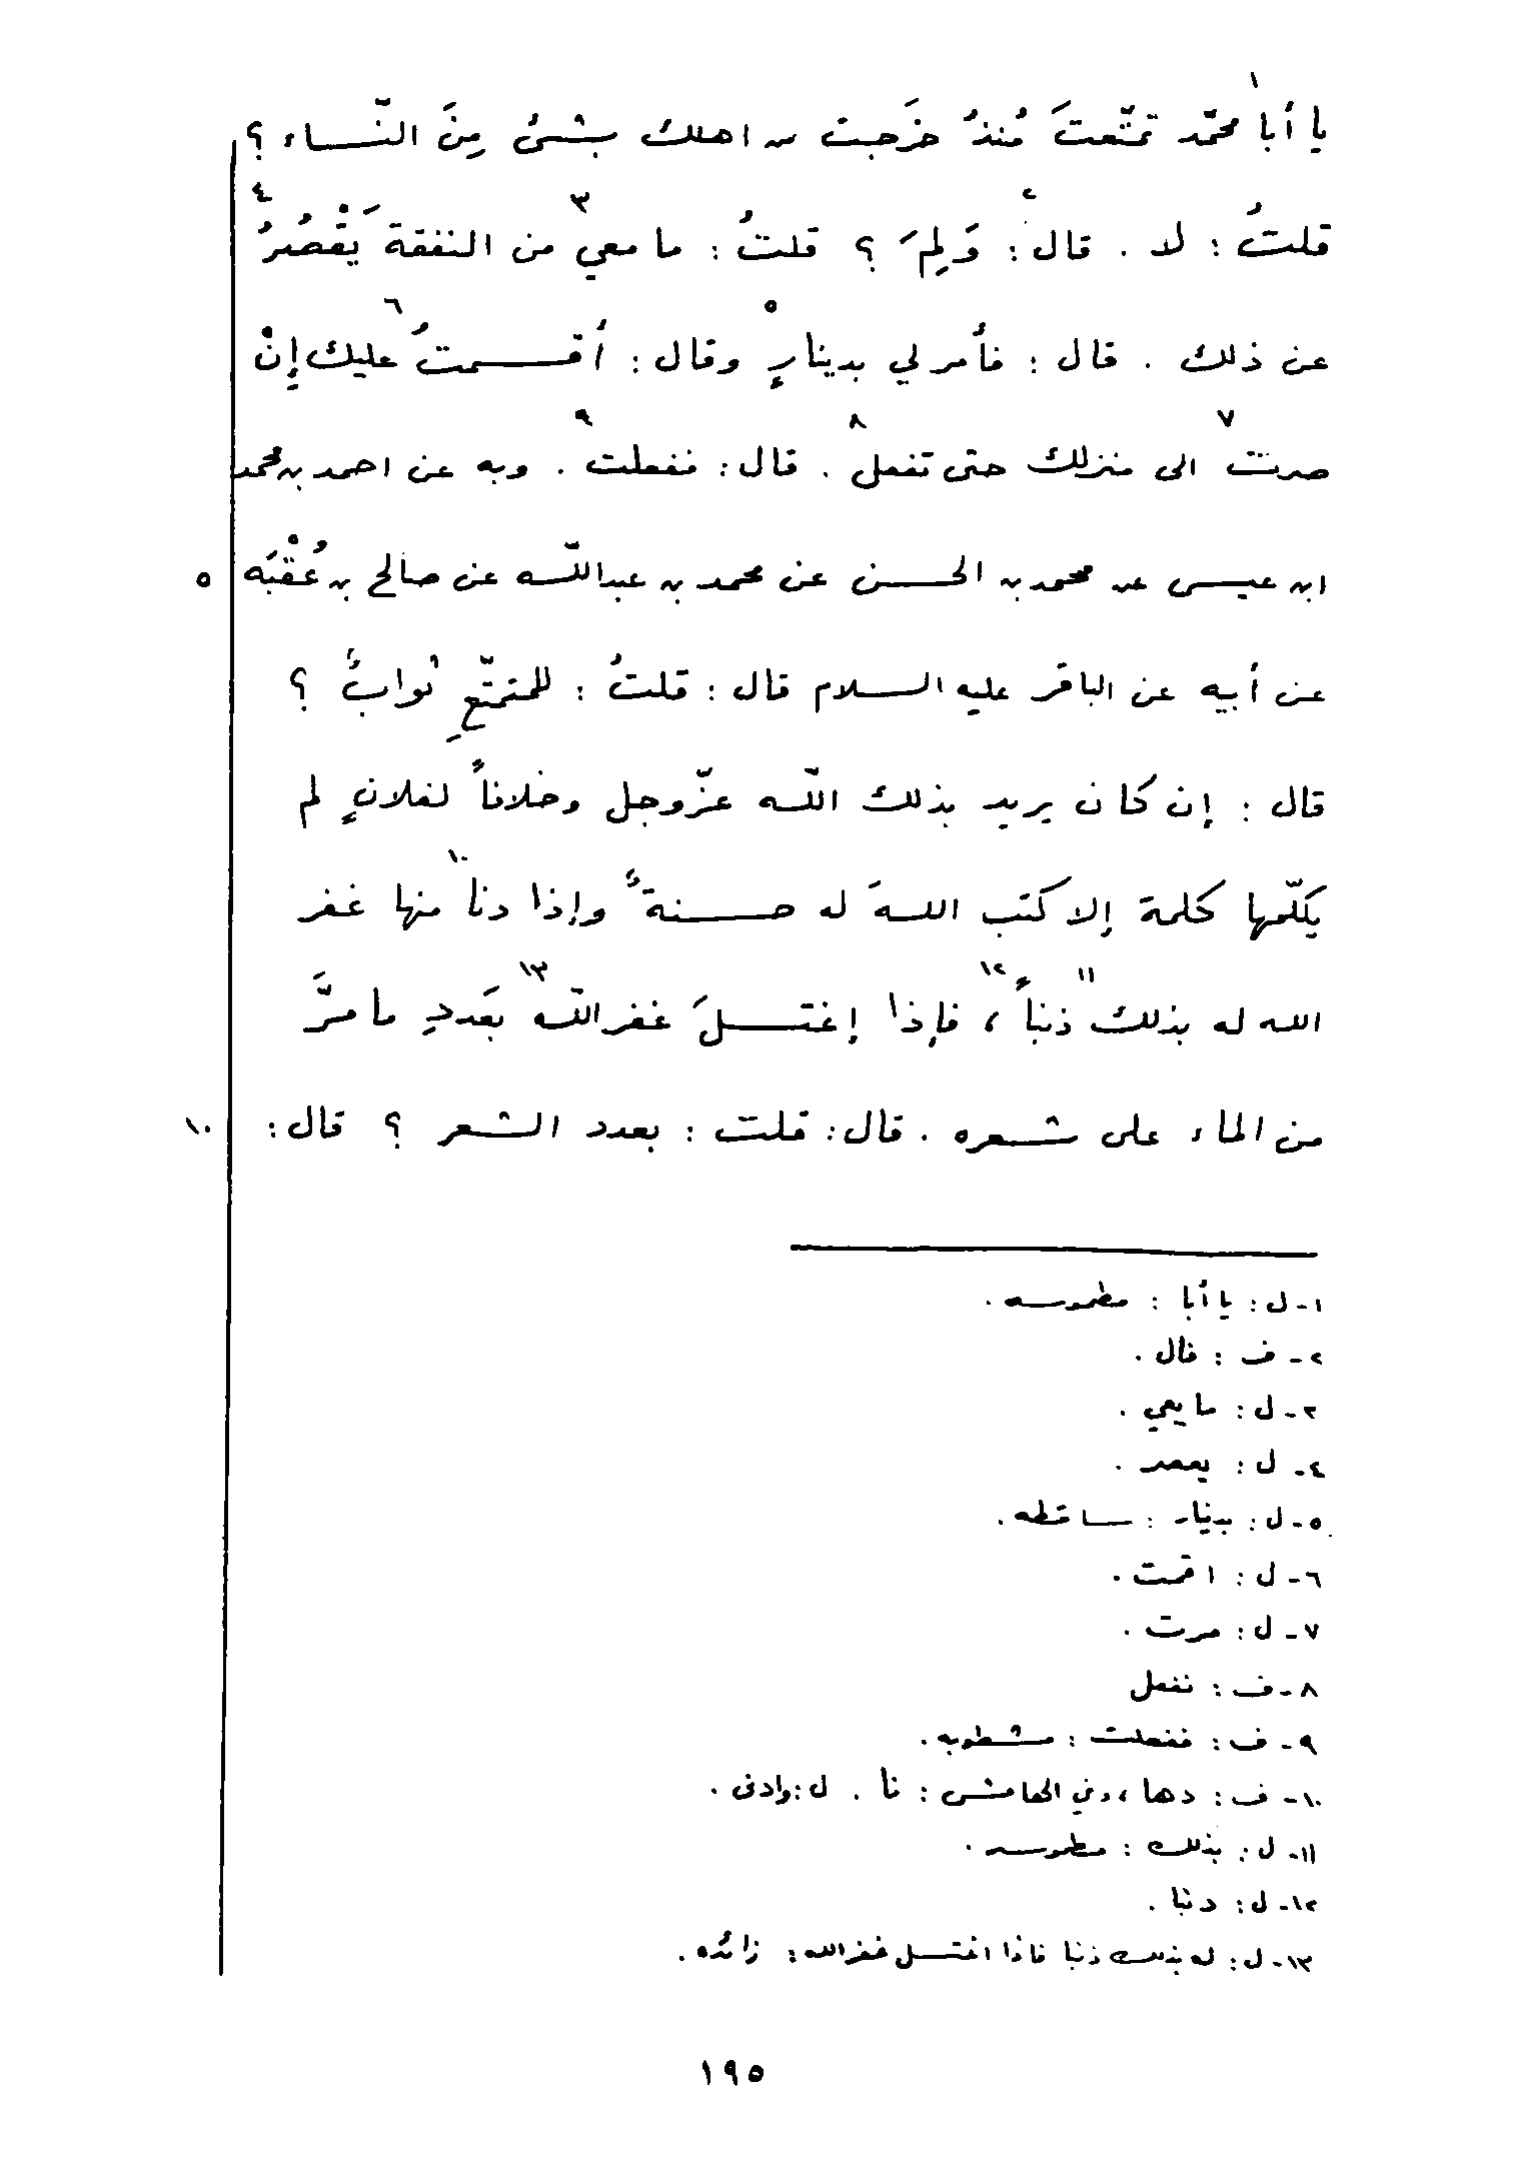 يا أبا١ محمّد تمتّعتَ مُنذُ خرَجت من اهلك بشئ مِنَ النّساء ؟
قلتُ : لا . قال٢ : وَلِمَ ؟ قلتُ : ما معي٣ من النفقة يَقْصُرُ٤
عن ذلك . قال : فأمر لي بدينارٍ٥ وقال : أُقسمتُ٦ عليك إِنْ
صرت٧ الى منزلك حتى تفعل٨ . قال : ففعلت٩ . وبه عن احمد بن محمد
ابن عيسى عن محمد بن الحسن عن محمد بن عبدالله عن صالح بن عُقْبَه ٥
عن أبيه عن الباقر عليه السلام قال : قلتُ : للمتمتّعِ ثوابٌ ؟
قال : إن كان يريد بذلك اللّه عزّوجل وخلافاً لفلانٍ لم
يكلّمها كلمة إلا كتب اللهَ له حسنةٌ وإذا دنا١٠ منها غفر
الله له بذلك١١ ذنباً١٢ ، فإذا إغتسلَ غفر اللّه١٣ بَعَددِ ما مرَّ
من الماء على شعره . قال : قلت : بعدد الشعر ؟ قال : ١٠
١- ل : يا أبا : مطموسه .
٢- ف : فال .
٣- ل : ما يعي .
٤- ل : يعصر .
٥- ل : بدينار : ساقطه .
٦- ل : اقمت .
٧- ل : مرت .
٨- ف : نفعل
٩- ف : ففعلت : مشطوبه .
١٠- ف : دها ، وفي الهامش : نأ . ل : وادنى .
١١- ل : بذلك : مطموسه .
١٢- ل : دنبا .
١٣- ل : له بذلك ذنبا فاذا اغتسل غفر الله : زائده .
١٩٥